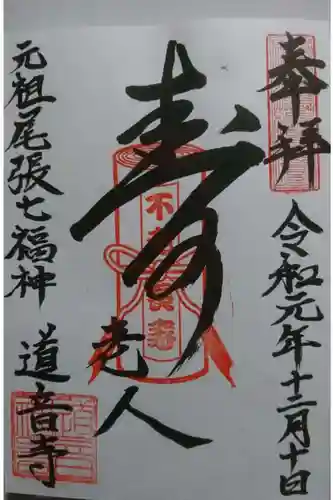 奉拝
令和元年十二月十日
寿老人
不老長寿
元祖尾張七福神
道音寺